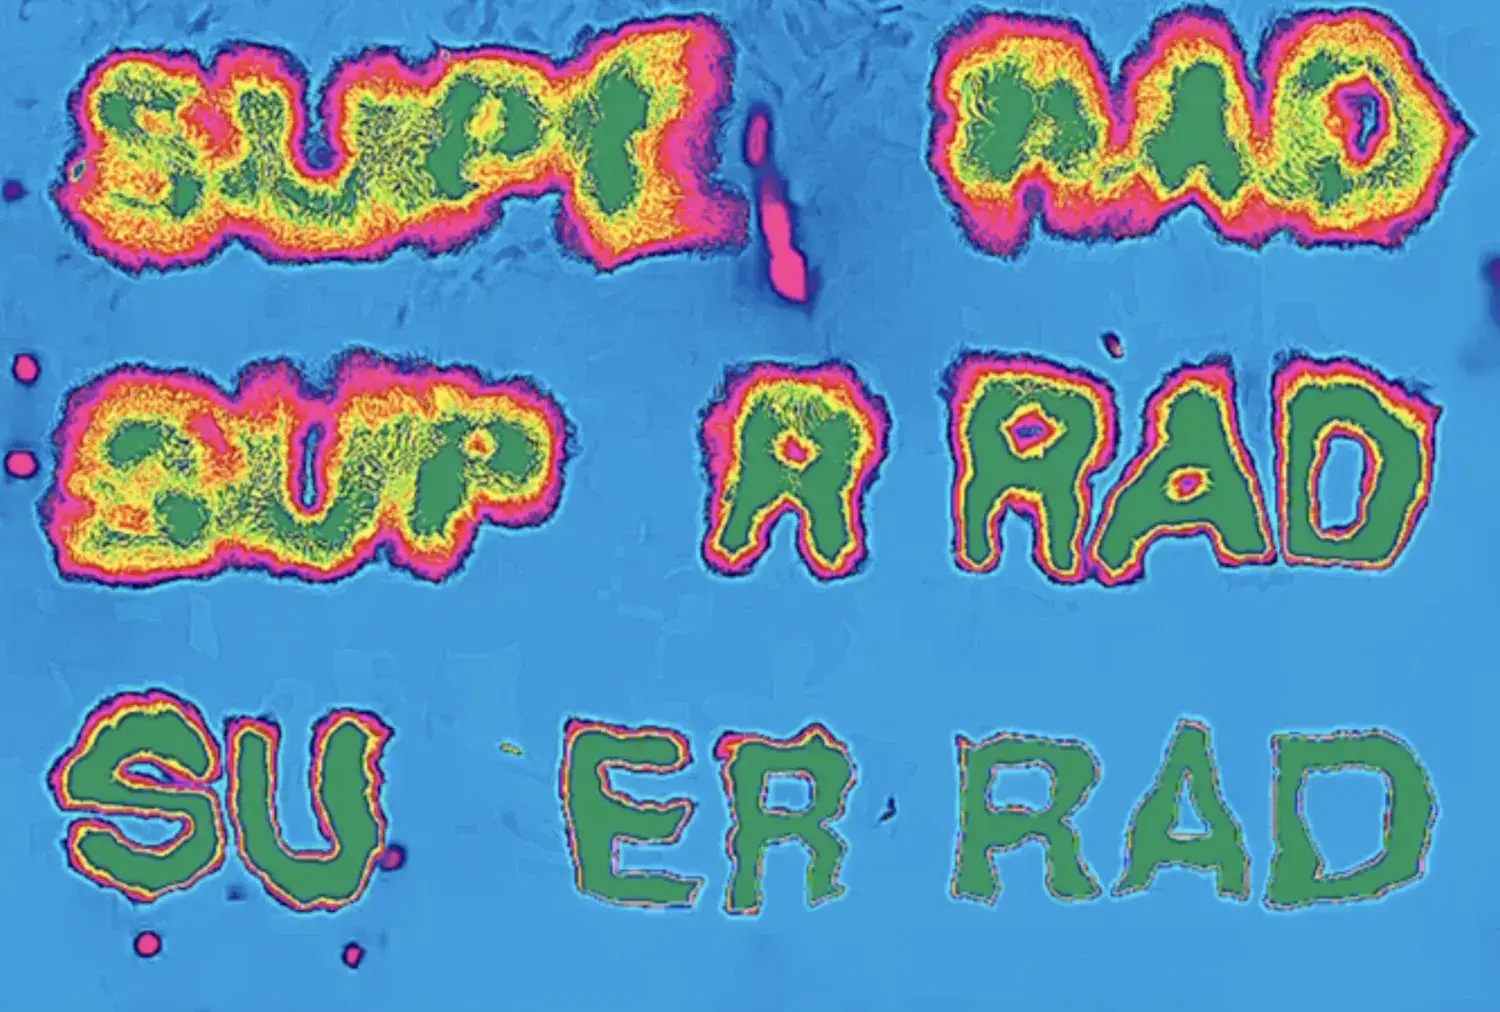 SUPE RAD
SUP R RAD
SU ER RAD